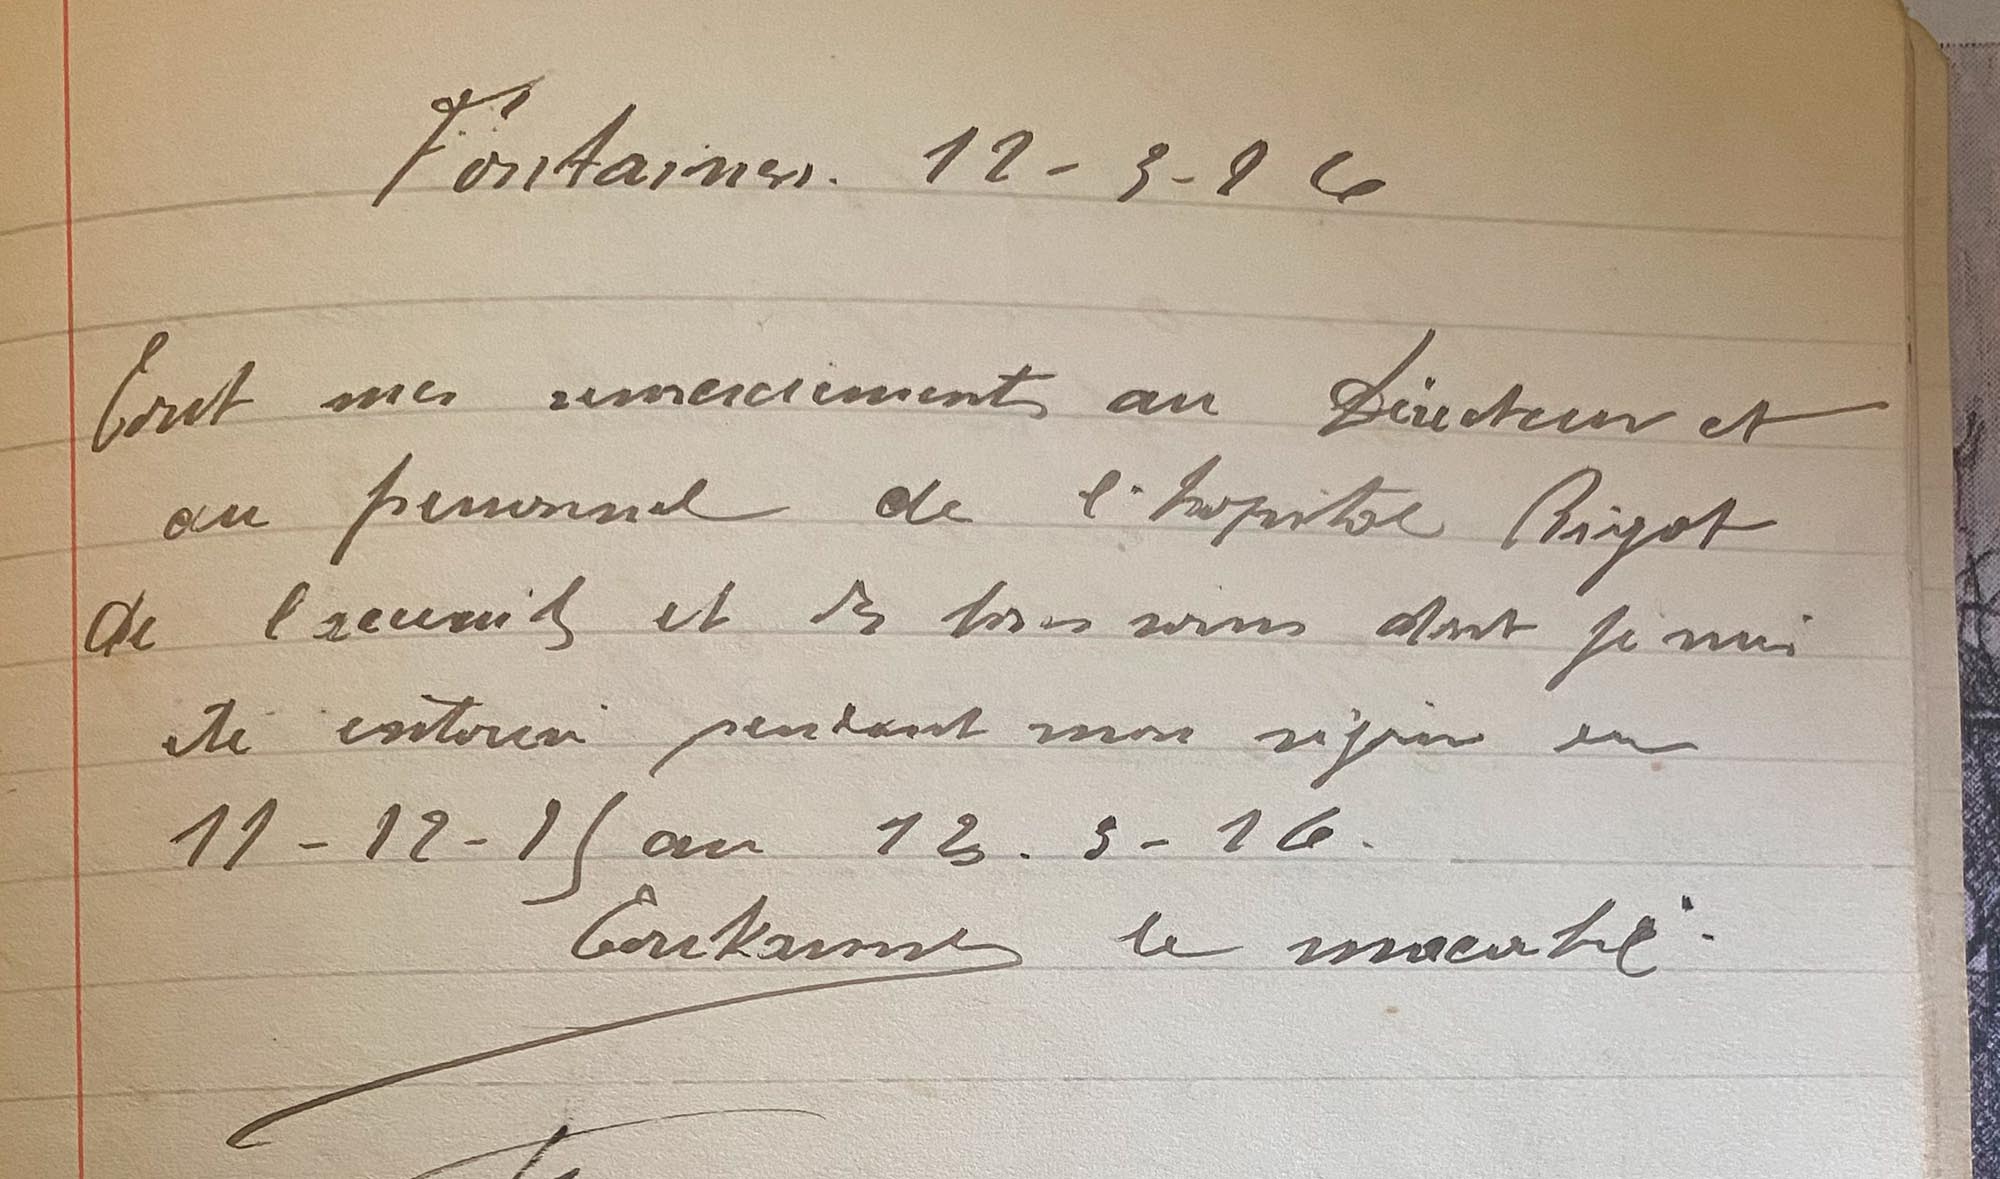 Fontaines. 12-3-16
Tout mes remerciements au Directeur et
au personnel de l'hopital Rigot
de l'acceuil et des bons soins dont je suis
été entouré pendant mon séjour en
11-12-15 au 13.3-16.
le